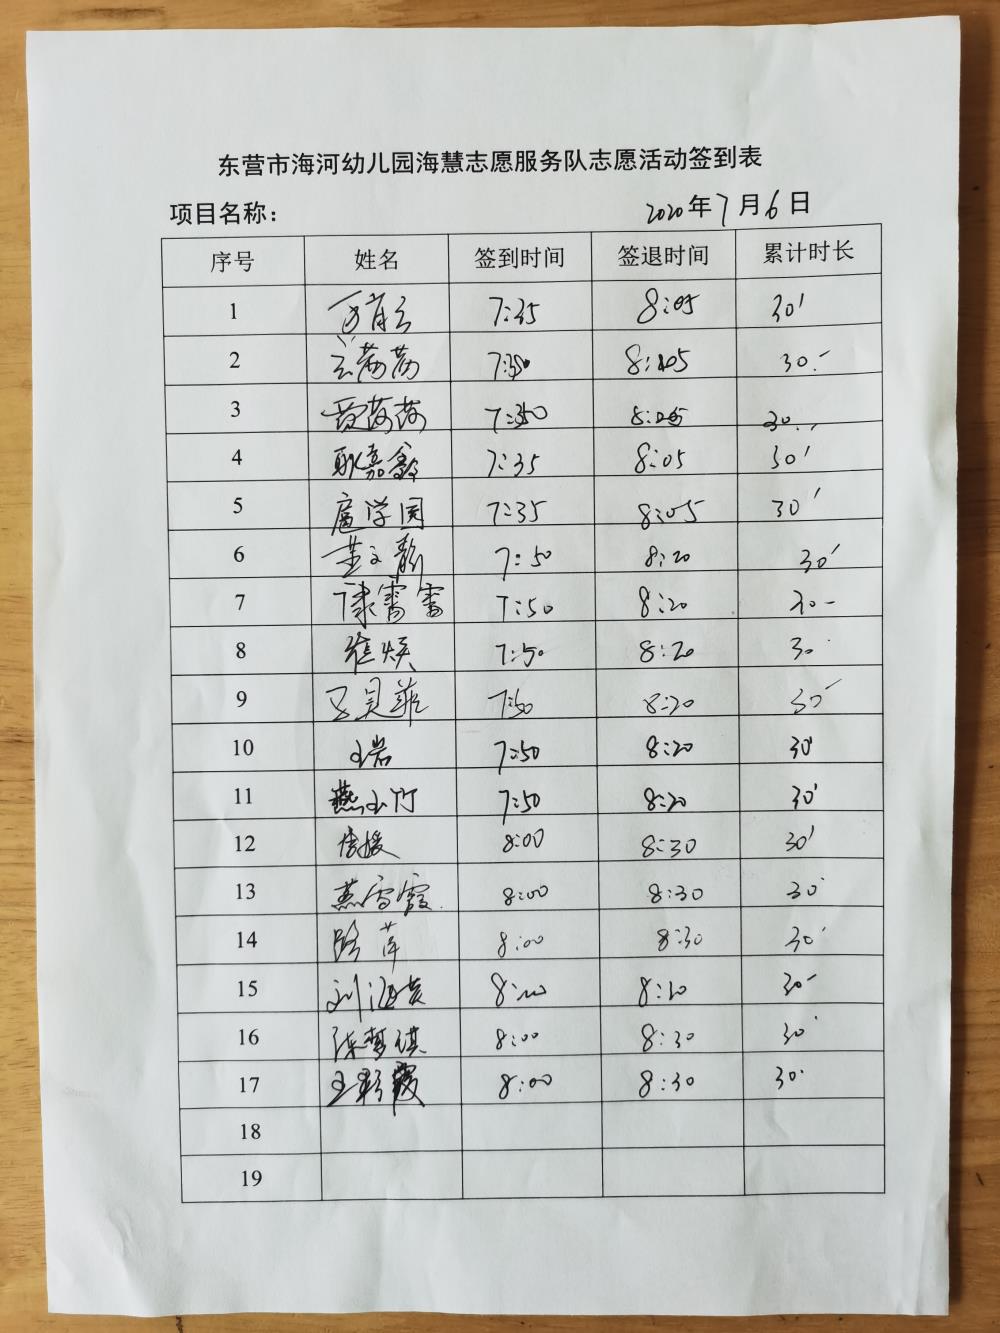 东营市海河幼儿园海慧志愿服务队志愿活动签到表
项目名称： 2020年7月6日
序号 姓名 签到时间 签退时间 累计时长
1 7:35 8:05 30'
2 8:05 30'
3 8:05 30'
4 耿嘉鑫 7:35 8:05 30'
5 扈学园 7:35 8:05 30'
6 董文静 7:50 8:20 30'
7 谏雷雷 7:50 8:20 30'
8 崔焕 7:50 8:20 30'
9 7:50 8:20 30'
10 王岩 7:50 8:20 30'
11 燕小竹 7:50 8:20 30'
12 8:00 8:30 30'
13 燕雪霞 8:00 8:30 30'
14 路萍 8:00 8:30 30'
15 30'
16 陈梦琪 8:00 8:30 30'
17 王彩霞 8:00 8:30 30'
18
19